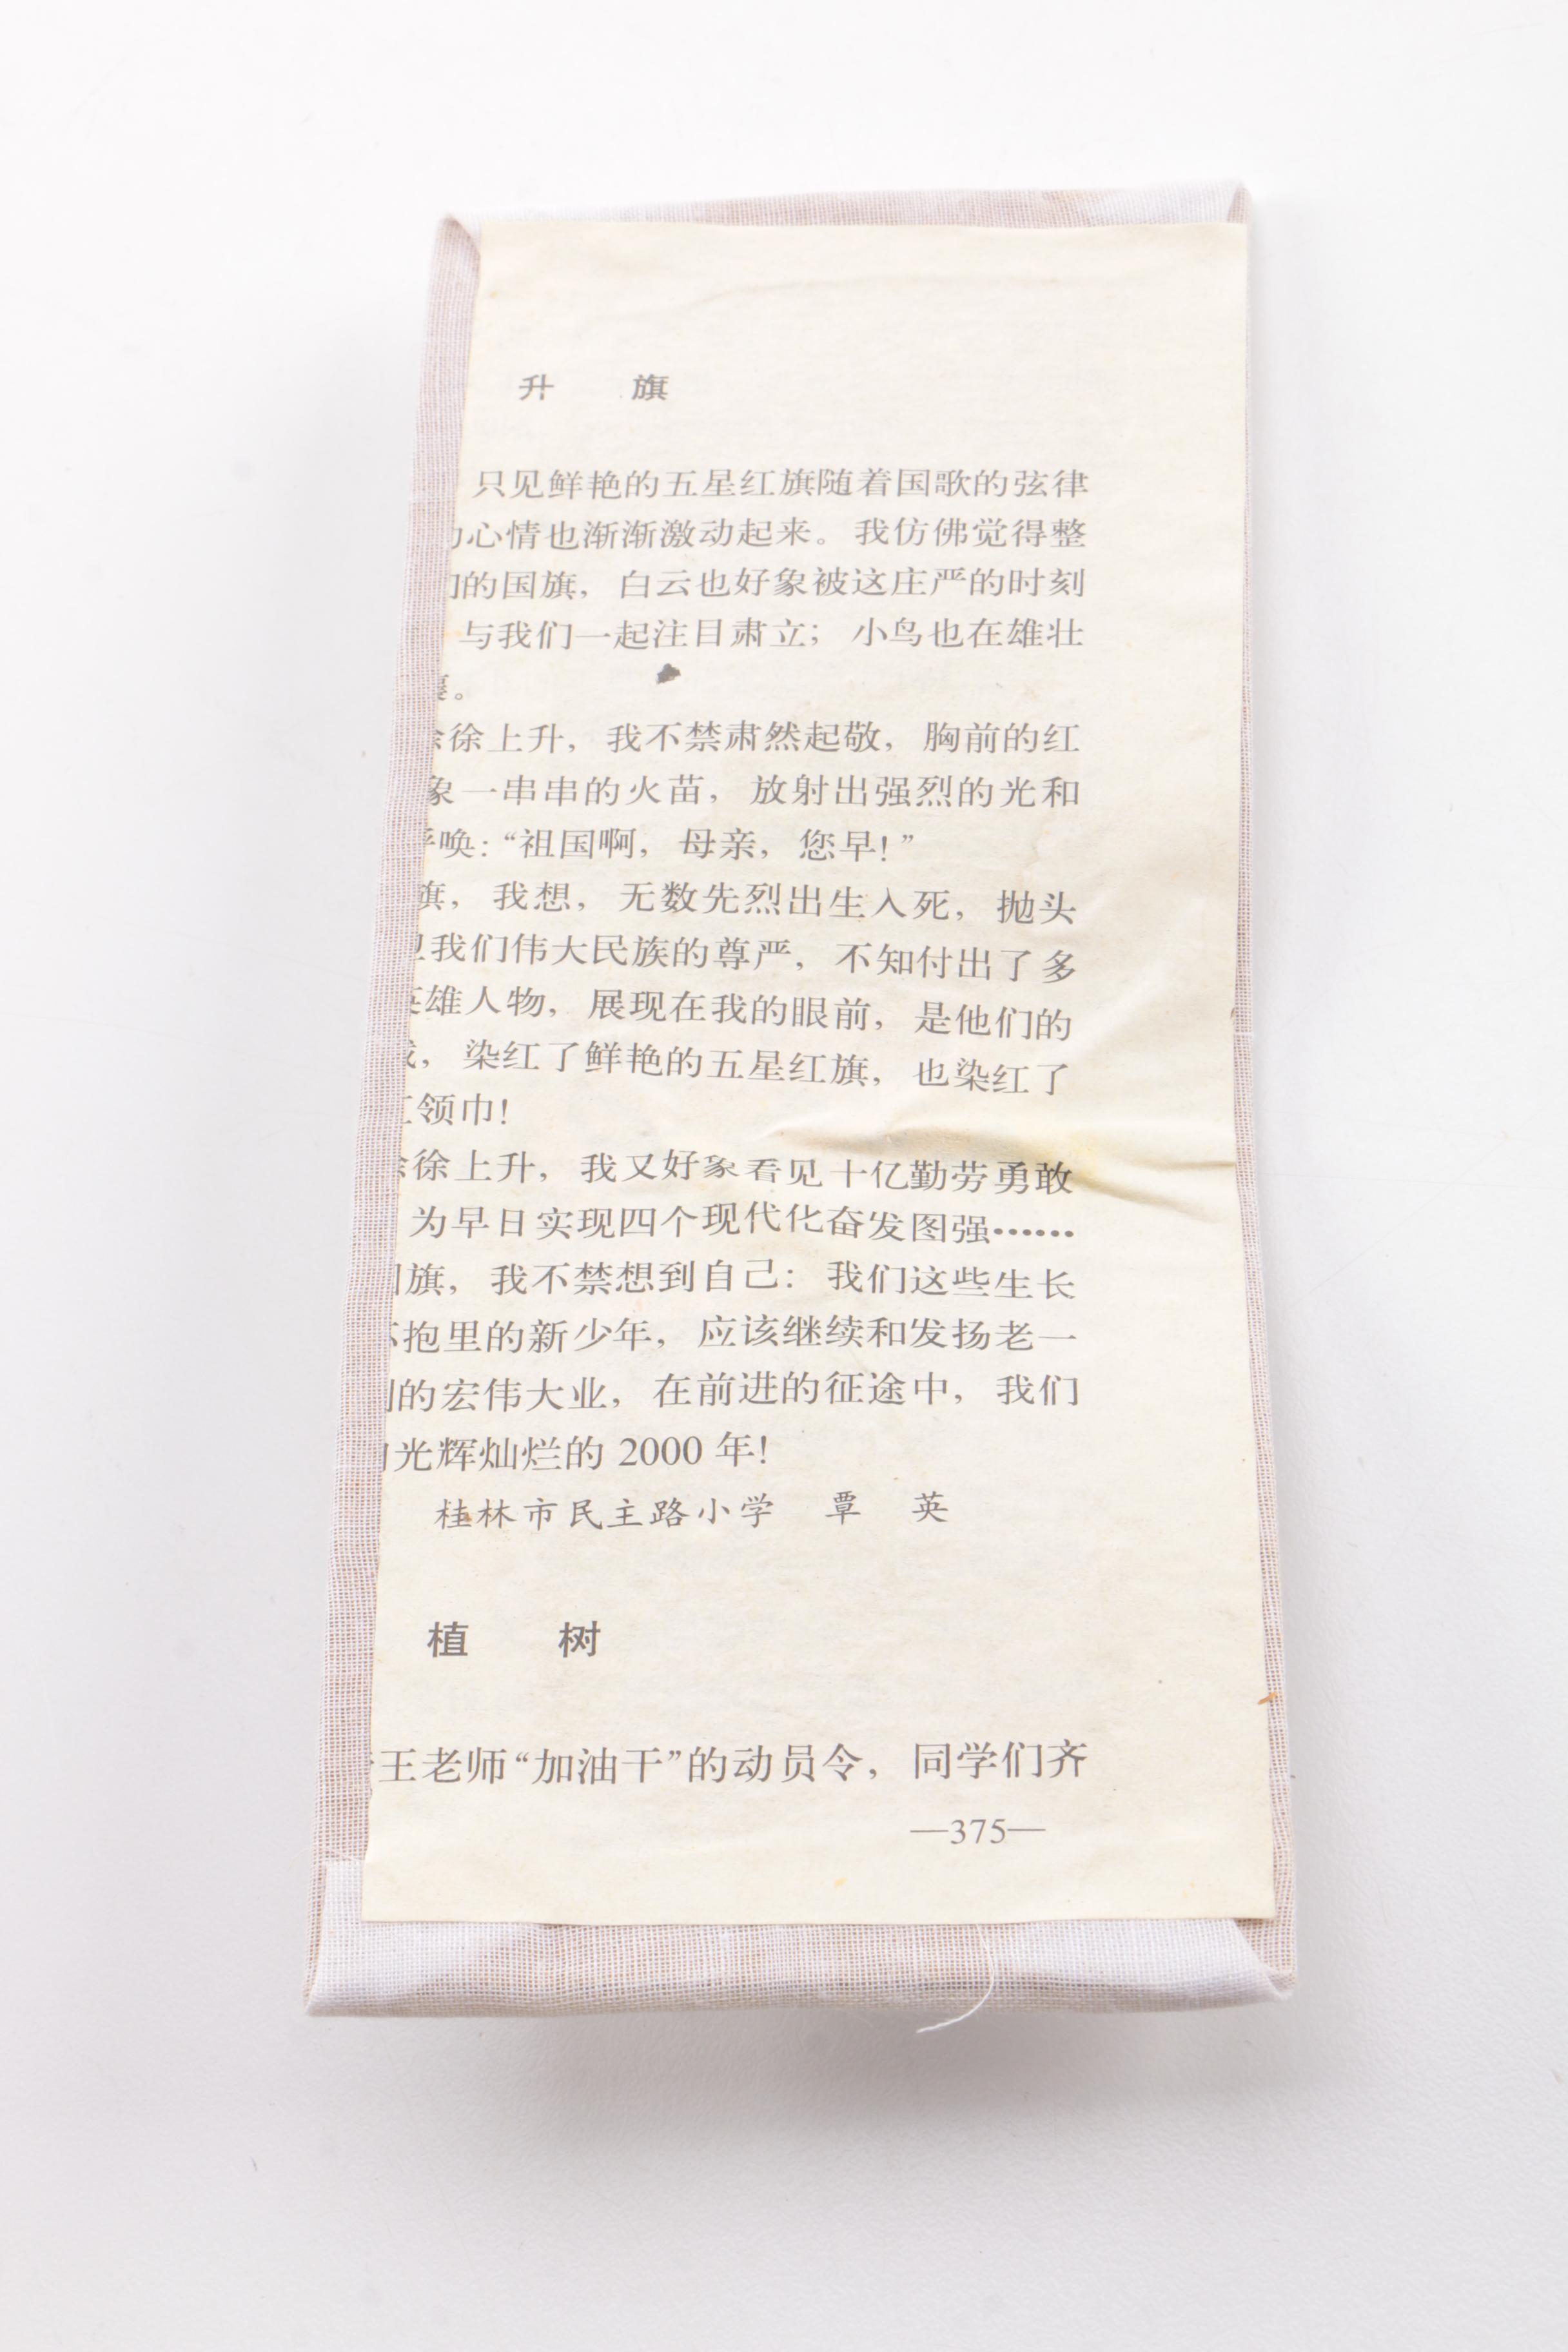 升 旗
只见鲜艳的五星红旗随着国歌的弦律
心情也渐渐激动起来。我仿佛觉得整
的国旗，白云也好象被这庄严的时刻
与我们一起注目肃立；小鸟也在雄壮
。
徐上升，我不禁肃然起敬，胸前的红
象一串串的火苗，放射出强烈的光和
唤：“祖国啊，母亲，您早！”
旗，我想，无数先烈出生入死，抛头
我们伟大民族的尊严，不知付出了多
雄人物，展现在我的眼前，是他们的
，染红了鲜艳的五星红旗，也染红了
领巾！
徐上升，我又好象看见十亿勤劳勇敢
为早日实现四个现代化奋发图强……
旗，我不禁想到自己：我们这些生长
抱里的新少年，应该继续和发扬老一
的宏伟大业，在前进的征途中，我们
光辉灿烂的 2000 年！
桂林市民主路小学 覃 英
植 树
王老师“加油干”的动员令，同学们齐
—375—